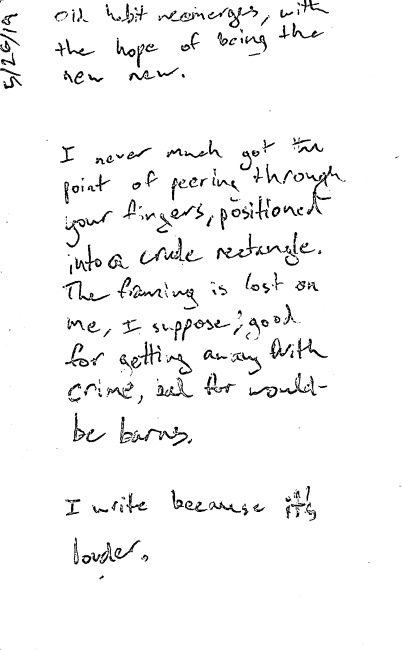 5/26/19
Old habit reemerges, with
the hope of being the
new new.
I never much got the
point of peering through
your fingers, positioned
into a crude rectangle.
The framing is lost on
me, I suppose; good
for getting away with
crime, bad for would-
be barns.
I write because it's
louder.